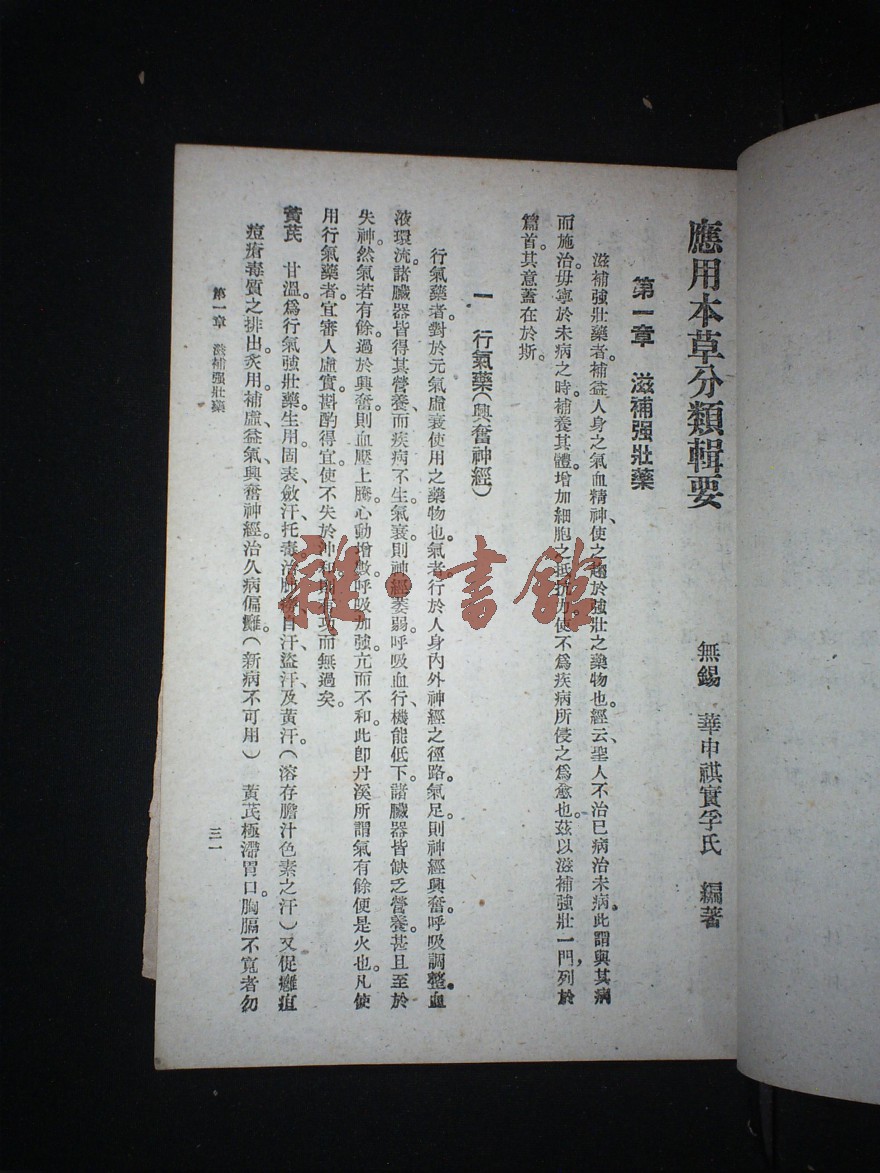 應用本草分類輯要
無錫 華申祺實孚氏 編著
第一章 滋補强壯藥
滋補強壯藥者。補益人身之氣血精神、使之趨於強壯之藥物也。經云、聖人不治已病治未病。此謂與其病
而施治。毋寧於未病之時。補養其體。增加細胞之抵抗力。使不爲疾病所侵之爲愈也。茲以滋補強壯一門，列於
篇首。其意蓋在於斯。
一 行氣藥(興奮神經)
行氣藥者。對於元氣虛衰使用之藥物也。氣者。行於人身內外神經之徑路。氣足。則神經興奮。呼吸調整。血
液環流。諸臟器皆得其營養。而疾病不生。氣衰。則神經萎弱。呼吸血行、機能低下。諸臟器皆缺乏營養。甚且至於
失神。然氣若有餘。過於興奮。則血壓上騰。心動增數。呼吸加強。亢而不和。此卽丹溪所謂氣有餘便是火也。凡使
用行氣藥者。宜審人虛實。斟酌得宜。使不失於冲和。而無過矣。
黃芪 甘溫。爲行氣強壯藥。生用。固表、斂汗、托毒。治自汗、盜汗、及黃汗。(溶存膽汁色素之汗)又促癰疽
痘瘡毒質之排出。炙用。補虛益氣。興奮神經。治久病偏癱。(新病不可用) 黃芪極滯胃口。胸膈不寬者勿
第一章 滋補强壯藥
三一
雜·書館